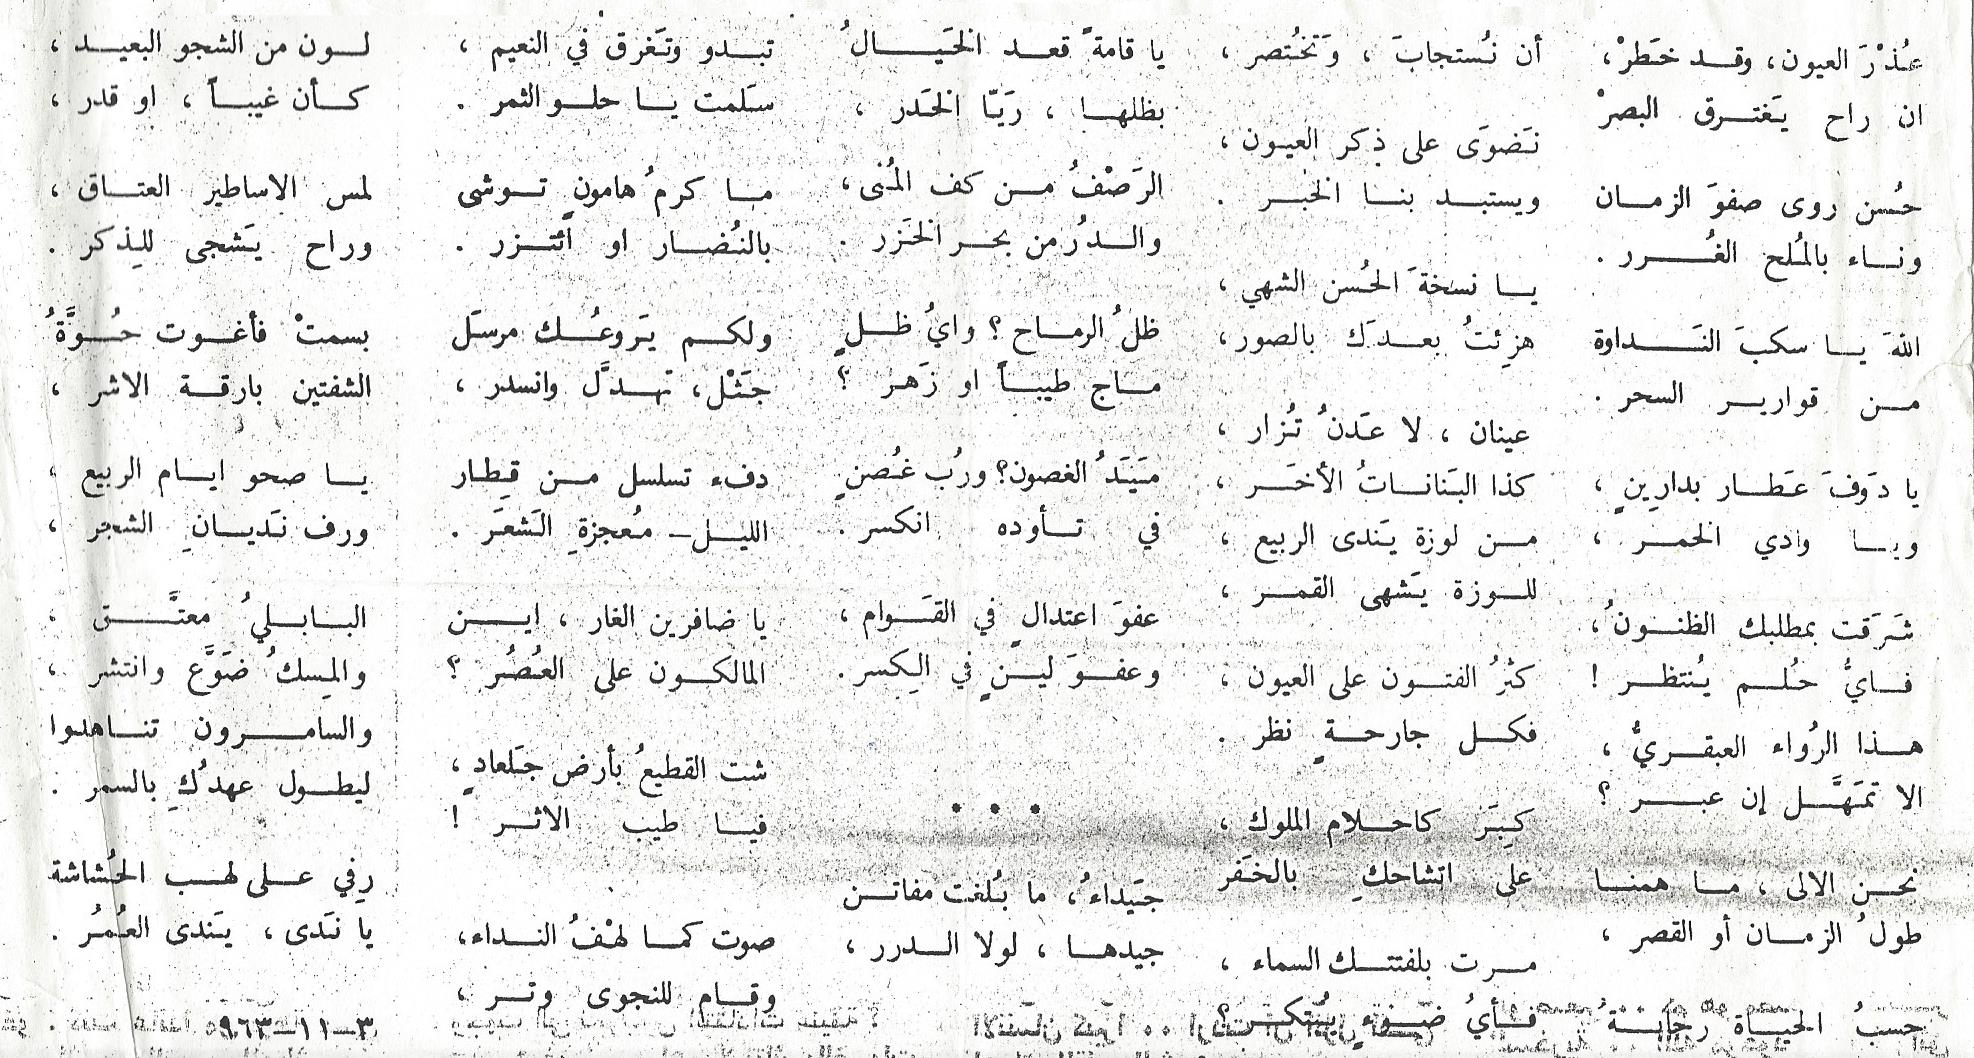 عُذْرَ العيون، وقد خَطَرْ،
ان راح يَغترق البصرْ
حُسن روى صفوَ الزمان
وناء بالمُلح الغُرر.
اللهَ يا سكبَ النَداوة
من قوارير السحر.
يا دَوفَ عَطار بدارِينٍ،
ويا وادي الخمر،
شَرَقت بمطلبك الظنونُ،
فايُّ حُلم يُنتظر!
هذا الرُواء العبقريُّ،
الا تمَهَّل إن عبر؟
نحن الالى، ما همنا
طولُ الزمان أو القصر،
حسبُ الحياة رجابةُ
أن نُستجابَ، وَتخُتصر،
نَضوَى على ذِكر العيون،
ويستبد بنا الخبر.
يا نسخةَ الحُسن الشهي،
هزِئتُ بعدَك بالصور،
عينان، لا عَدنُ تُزار،
كذا البَنانات الأخَر،
من لوزة يَندى الربيع،
للوزة يَشهى القمر،
كثرُ الفتون على العيون،
فكل جارحةٍ نظر.
كِبَرَ كاحلام الملوك،
على اتشاحكِ بالخَفر
مرت بلفتتك السماء،
فأيُ ضَوءٍ يُبتكر؟
يا قامةً قعد الخَيالُ
بظلها، رَيّا الخَدر،
الرَصْفُ من كف المُنى،
والدُر من بحر الخَزر.
ظلُ الرماح؟ وايُ ظلٍ
ماج طيباً او زَهر؟
مَيَدُ الغصون؟ ورُب غُصنٍ
في تأوده انكسر.
عفوَ اعتدالٍ في القَوام،
وعفوَ لينٍ في الكِسر.
• • •
جَيداءُ، ما بُلغت مفاتن
جيدها، لولا الدرر،
تبدو وتَغرق في النعيم،
سَلمت يا حلو الثمر.
ما كرمُ هامونٍ توشى
بالنُضار او اتزر.
ولكم يَروعُك مرسَل
جَثْل، تهدَّل وانسدر،
دفء تسلسل من قِطار
الليل – مُعجزةِ الشَعَر.
يا ضافرين الغار، اين
المالكون على العُصُر؟
شت القطيعُ بأرض جَلعادٍ،
فيا طيب الاثر!
صوت كما لهْفُ النداء،
وقام للنجوى وتر،
لون من الشجو البعيد،
كأن غيباً، او قدر،
لمس الاساطير العتاق،
وراح يَشجى للِذكر.
بسمتْ فأغوت حُوَّةُ
الشفتين بارقة الاشر،
يا صحو ايام الربيع،
ورف نَديانِ الشجر،
البابليُ معتَّق،
والمِسكُ ضَوَّع وانتشر،
والسامرون تناهدوا
ليطول عهدُكِ بالسمر.
رِفي على لهب الحُشاشة
يا نَدى، يَندى العُمرُ.
٣-١١-٩٦٣